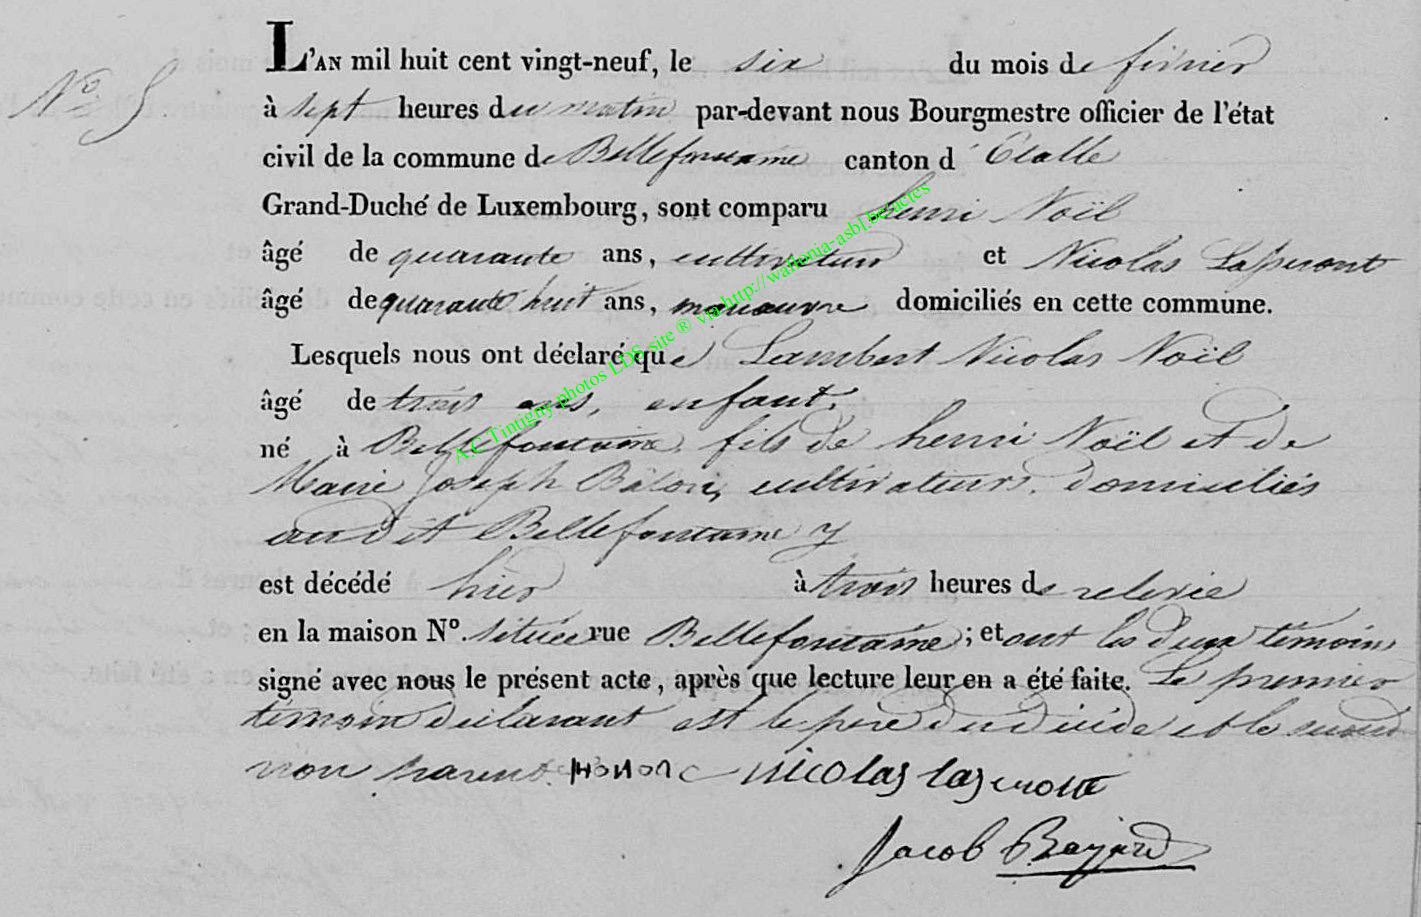 N° 5
L'AN mil huit cent vingt-neuf, le six du mois de février
à sept heures du matin par-devant nous Bourgmestre officier de l'état
civil de la commune de Bellefontaine canton d'Etalle
Grand-Duché de Luxembourg, sont comparu henri Noël
âgé de quarante ans, cultivateur et Nicolas
âgé de quarante huit ans, manœuvre domiciliés en cette commune.
Lesquels nous ont déclaré que Lambert Nicolas Noël
âgé de trois ans, enfant,
né à Bellefontaine, fils de henri Noël et de
Marie Joseph Balon, cultivateurs, domiciliés
au dit Bellefontaine
est décédé hier à trois heures de relevée
en la maison N°. située rue Bellefontaine; et ont les deux témoins
signé avec nous le présent acte, après que lecture leur en a été faite. Le premier
témoin déclarant est le père du décédé et le second
non parent
nicolas
Jacob Bayard
A.C. Tintigny photos LDS sue ® via http://wallonia-asbl.be/actes